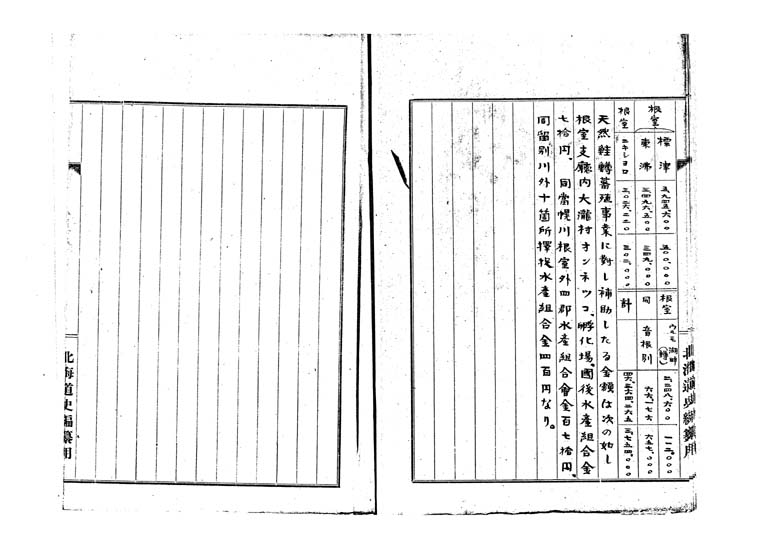 根室 標津 五、九四五、六〇〇 五〇〇、〇〇〇 根室 ウエンモ湖畔(鱒) 三、三四八、六〇〇 一一三、〇〇〇
東沸 三、四九六、五〇〇 三四九、〇〇〇 同 音根別 六六一、七六 六五七、〇〇〇
根室 ニキショロ 三、〇三六、二二〇 三〇三、〇〇〇 計 四六、五六四、三六五 三、七五四、〇〇〇
天然鮭鱒蕃殖事業に対し補助したる金額は次の如し
根室支廳内大瀧村オンネツコ、孵化場、國後水産組合金
七拾円、同當幌川根室外四郡水産組合會金百七拾円、
同留別川外十箇所擇捉水産組合金四百円なり。
北海道史編纂用
北海道史編纂用